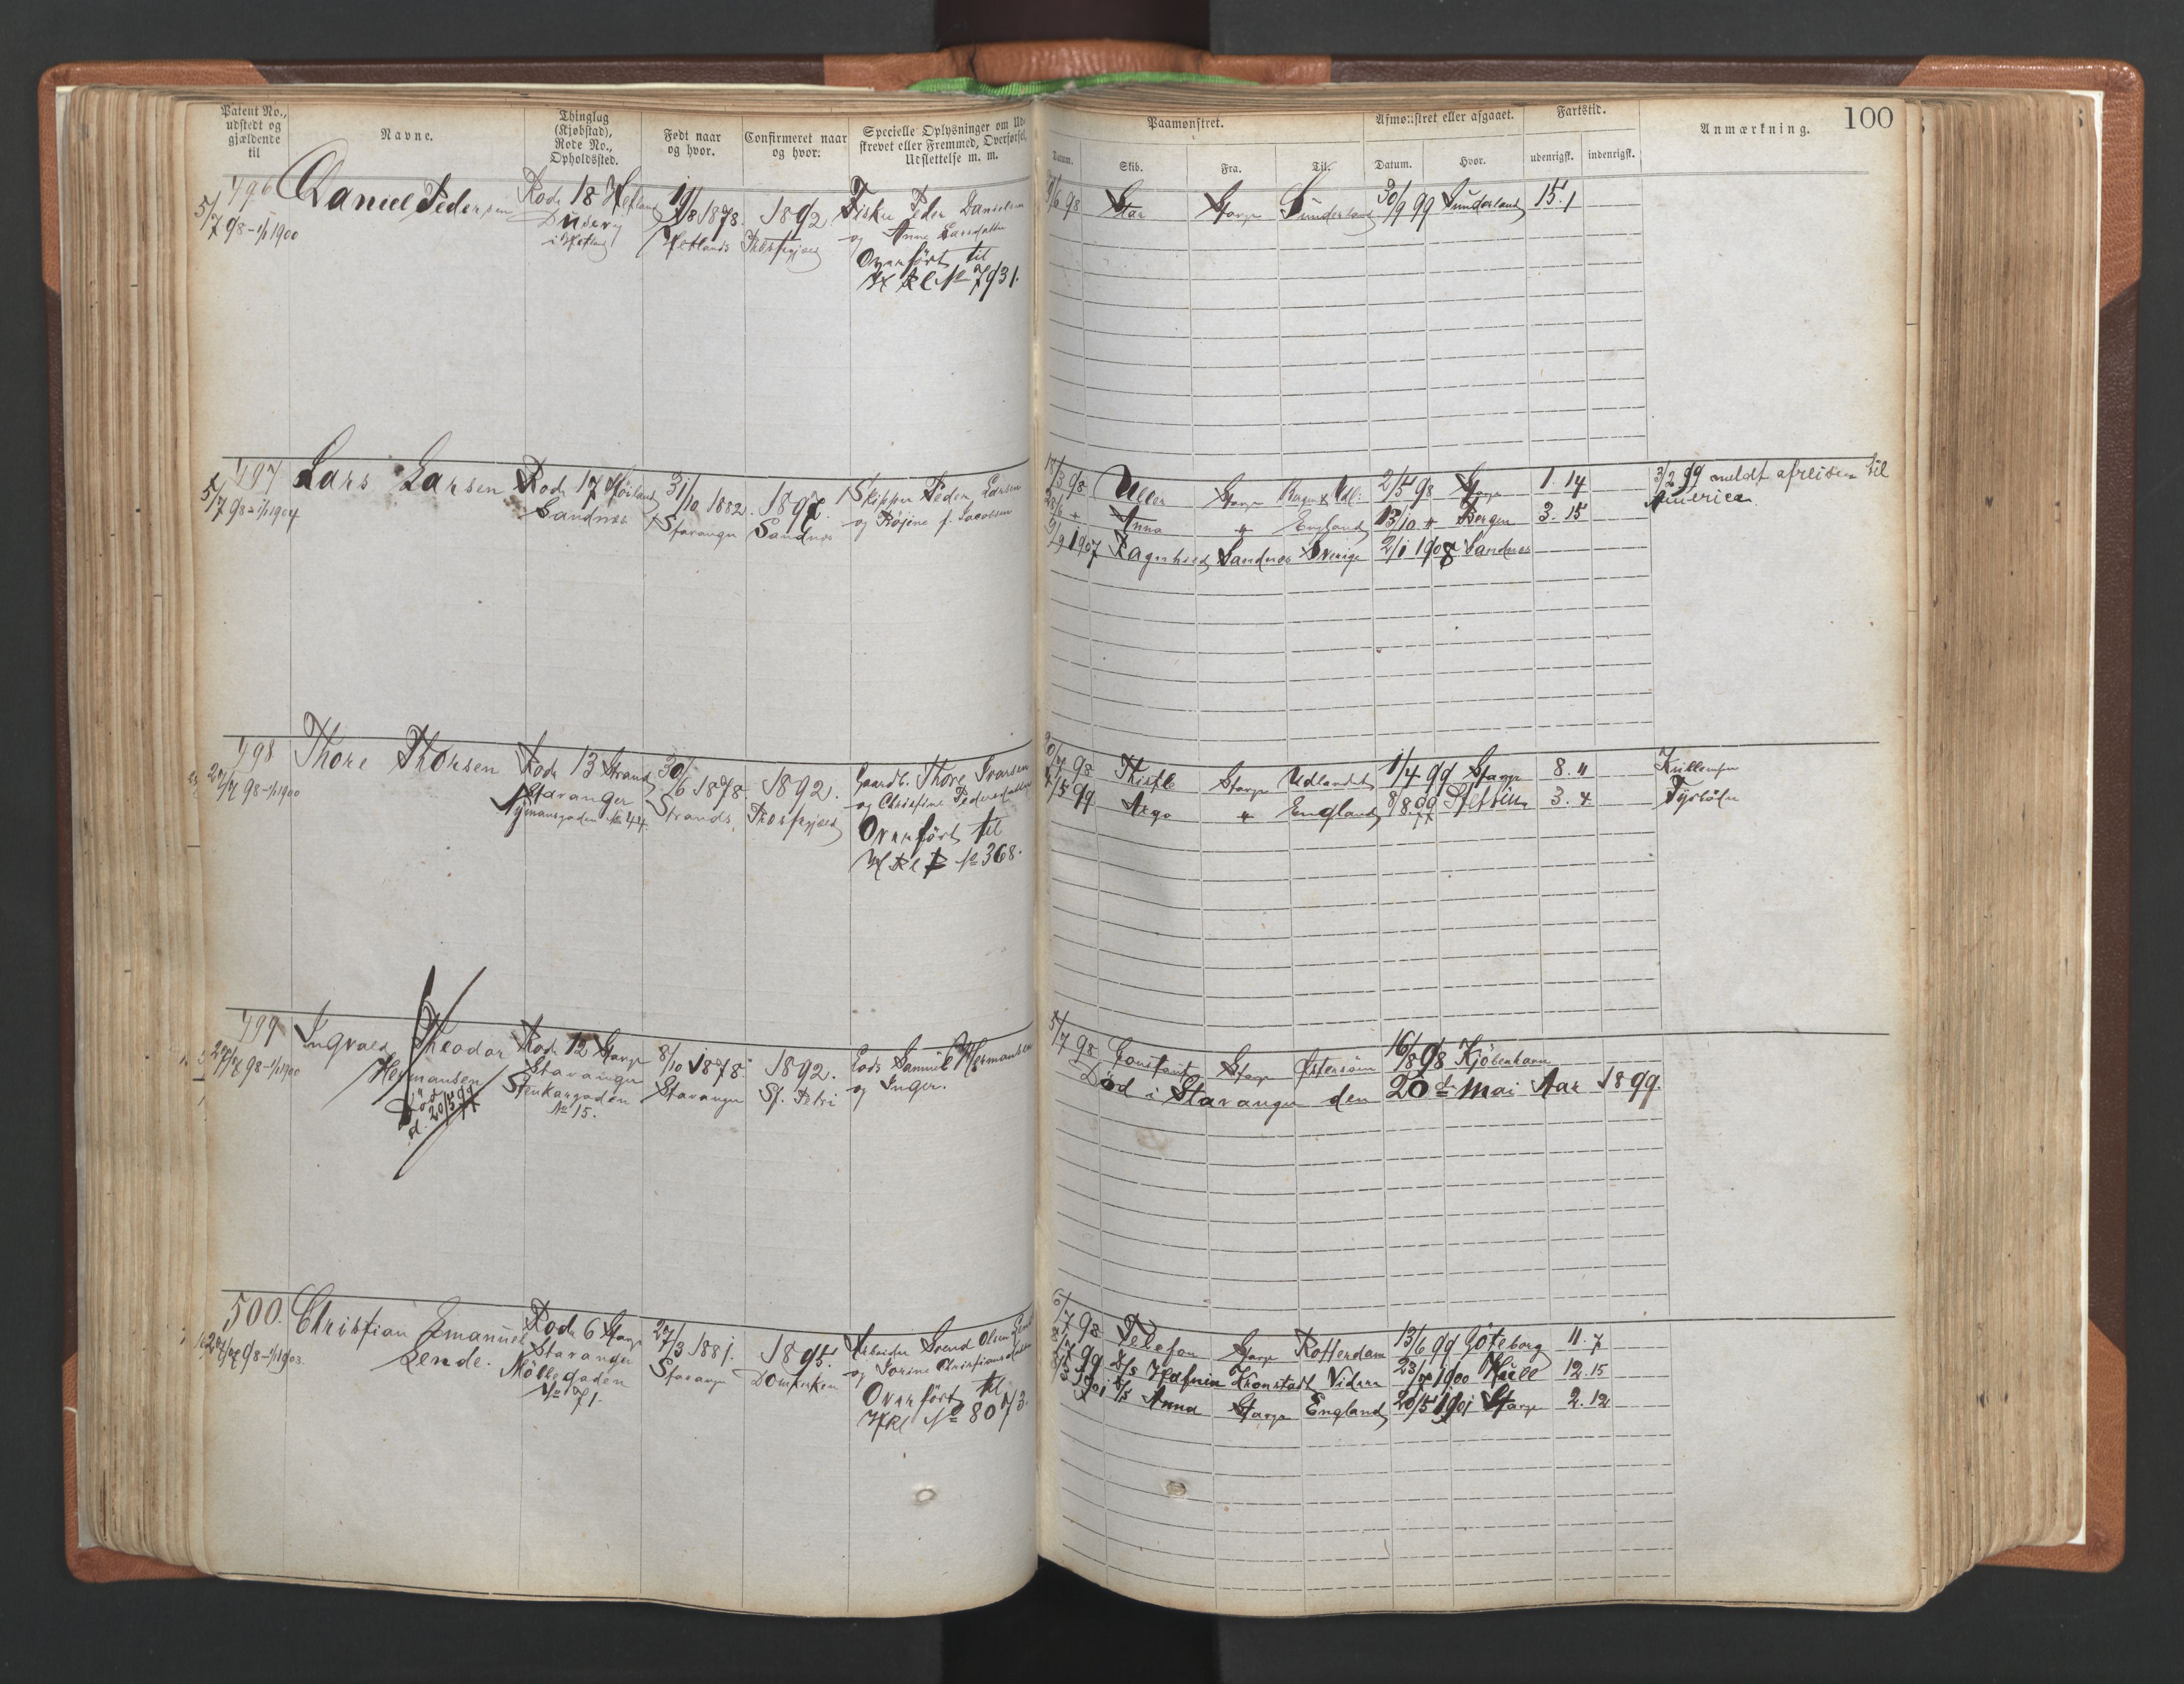 Patent No., udstedt og gjældende til
Navne.
Thinglag (Kjøbstad), Rode No., Opholdssted.
Født naar og hvor.
Confirmeret naar og hvor.
Specielle Oplysninger om Ud-
skrevet eller Fremmed, Overførsel,
Udslettelse m. m.
Paamønstret.
Afmønstret eller afgaaet.
Fartstid.
Anmærkning.
100
Datum.
Skib.
Fra.
Til.
Datum.
Hvor.
udenrigsk.
indenrigsk.
496
5/7 98 - 1/1 1900
Daniel Pedersen
Rode 18 Hetland
Dusevig
i Hetland
19/8 1878.
Hetlands
1892.
Præstegjæld
Fisker Peder Danielsen
og Anne Larsdatter
Overført til
H Rl No 7931.
9/6 98 Star Stavgr Sunderland 30/9 99 Sunderland 15. 1
497
5/7 98 - 1/1 1904
Lars Larsen
Rode 17 Høiland
Sandnes
31/10 1882.
Stavanger
1897.
Sandnes
Skipper Peder Larsen
og f. Jacobsen
18/3 98 Uller Stavgr 2/5 98 Stavgr 1. 14
3/2 99 meldt afreisen til
America
28/6 " Anna " England 13/10 " Bergen 3. 15
9/9 1907 Ragnhild Sandnes Sverige 2/1 1908 Sandnes
498
27/7 98 - 1/1 1900
Thore Thorsen
Rode 13 Strand
Stavanger
Nymansgaden No 44.
30/6 1878.
Strands
1892.
Præstegjæld
Gaardb. Thore Ivarsen
og Christine Pedersdatter
Overført til
H Rl No 368.
20/7 98 Thistle Stavgr Udlandet 1/4 99 Stavgr 8. "
5/5 99 Argo " England 8/8 99 Stettin 3. 4
499
27/7 98 - 1/1 1900
Ingvald Theodor
Hermansen
Død
d. 20/5 99
Rode 12 Stavgr
Stavanger
Stenkargaden
No 15.
8/10 1878.
Stavanger
1892.
St. Petri
Lods Samuel Hermansen
og Inger.
5/7 98 Constant Stavgr Østersøen 16/8 98 Kjöbenhavn
Død i Stavanger den 20de Mai Aar 1899.
500.
27/7 98 - 1/1 1903.
Christian Emanuel
Lende.
Rode 6 Stavgr
Stavanger
Möllegaden
No 71.
27/3 1881.
Stavanger
1895.
Domkirken
Arbeider Svend Olsen Lende
og Sorine Christiansdatter
Overført til
H Rl No 8073.
6/7 98 Telefon Stavgr Rotterdam 13/6 99 Göteborg 11. 7
Hafnia Kronstadt Videre 23/7 1900 Hull 12. 15
Anna Stavgr England 20/5 1901 Stavgr 2. 12